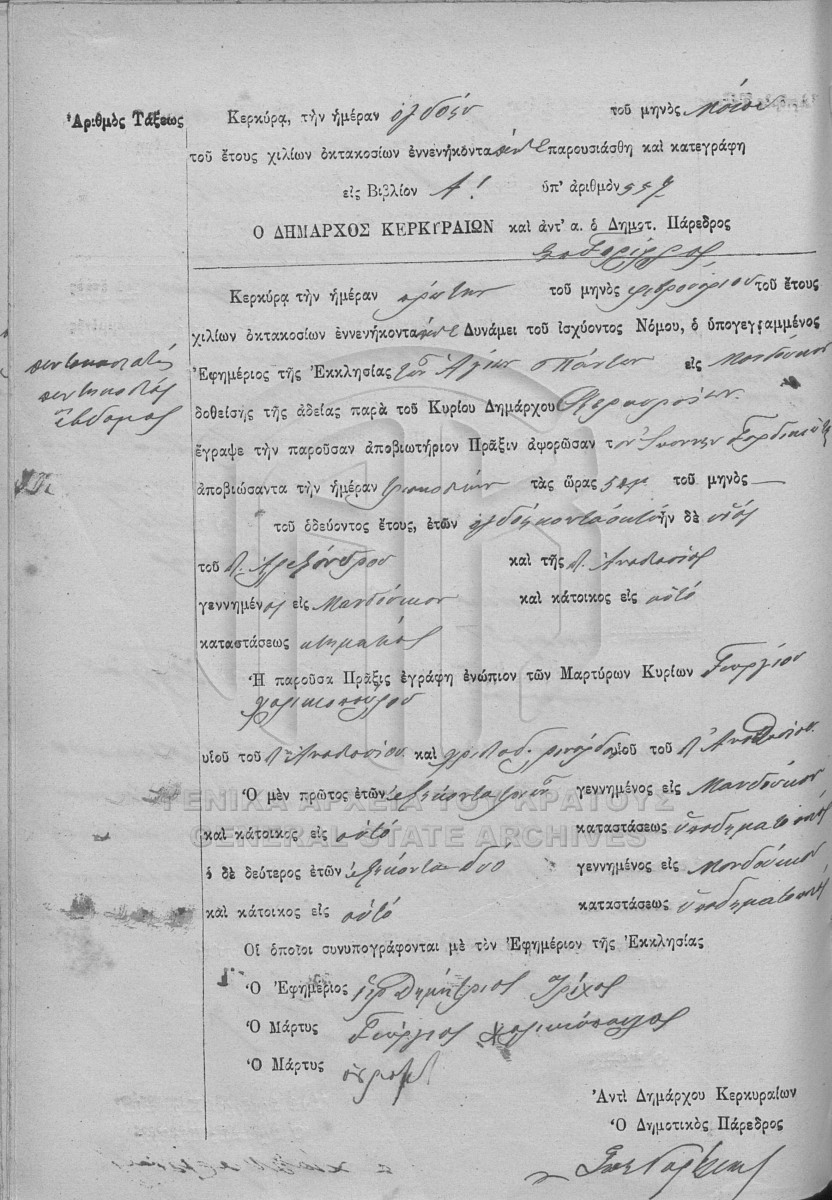 Ἀριθμὸς Τάξεως
Κερκύρα, τὴν ἡμέραν ὀγδόην τοῦ μηνὸς Μαΐου
τοῦ ἔτους χιλίων ὀκτακοσίων ἐννενήκοντα πέντε παρουσιάσθη καὶ κατεγράφη
εἰς Βιβλίον Α! ὑπ' ἀριθμὸν 557
Ὁ ΔΗΜΑΡΧΟΣ ΚΕΡΚΥΡΑΙΩΝ καὶ ἀντ' α. ὁ Δημοτ. Πάρεδρος
Κερκύρα τὴν ἡμέραν πρώτην τοῦ μηνὸς Φεβρουαρίου τοῦ ἔτους
χιλίων ὀκτακοσίων ἐννενήκοντα πέντε Δυνάμει τοῦ ἰσχύοντος Νόμου, ὁ ὑπογεγραμμένος
πεντακοσιοστὸς
πεντηκοστὸς
ἕβδομος
Ἐφημέριος τῆς Ἐκκλησίας τῶν Ἁγίων Πάντων εἰς Μανδούκιον
δοθείσης τῆς ἀδείας παρὰ τοῦ Κυρίου Δημάρχου Κερκυραίων.
ἔγραψε τὴν παροῦσαν ἀποβιωτήριον Πρᾶξιν ἀφορῶσαν τὸν Ἰωάννην
ἀποβιώσαντα τὴν ἡμέραν τὰς ὥρας 5 τοῦ μηνὸς
τοῦ ὁδεύοντος ἔτους, ἐτῶν ὀγδοήκοντα ὀκτὼ ἦν δὲ υἱὸς
τοῦ π. Ἀλεξάνδρου καὶ τῆς π. Ἀναστασίας
γεννημένος εἰς Μανδούκιον καὶ κάτοικος εἰς αὐτό
καταστάσεως κτηματίας
Ἡ παροῦσα Πρᾶξις ἐγράφη ἐνώπιον τῶν Μαρτύρων Κυρίων Γεωργίου
Χαλικιοπούλου
υἱοῦ τοῦ π. Ἀναστασίου καὶ υἱοῦ τοῦ π. Ἀναστασίου.
Ὁ μὲν πρῶτος ἐτῶν ἑξήκοντα γεννημένος εἰς Μανδούκιον
καὶ κάτοικος εἰς αὐτό καταστάσεως ὑποδηματοποιός
ὁ δὲ δεύτερος ἐτῶν ἑξήκοντα δύο γεννημένος εἰς Μανδούκιον
καὶ κάτοικος εἰς αὐτό καταστάσεως ὑποδηματοποιός
Οἱ ὁποῖοι συνυπογράφονται μὲ τὸν Ἐφημέριον τῆς Ἐκκλησίας
Ὁ Ἐφημέριος Δημήτριος
Ὁ Μάρτυς Γεώργιος Χαλικιόπουλος
Ὁ Μάρτυς
Ἀντὶ Δημάρχου Κερκυραίων
Ὁ Δημοτικὸς Πάρεδρος
ΓΕΝΙΚΑ ΑΡΧΕΙΑ ΤΟΥ ΚΡΑΤΟΥΣ
GENERAL STATE ARCHIVES